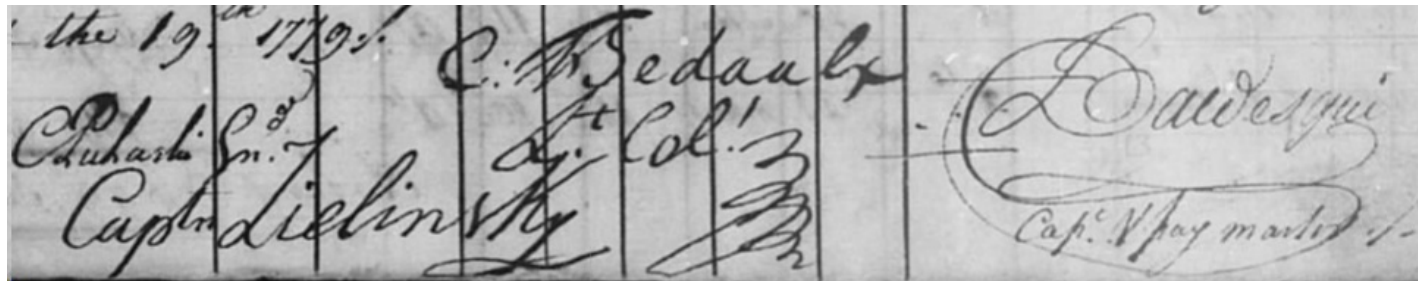 the 19th 1779
C. Bedaulx
Lt Col!
Puhaski Gn.
Captn Zielinsky
Baldesqui
Capt. & pay master